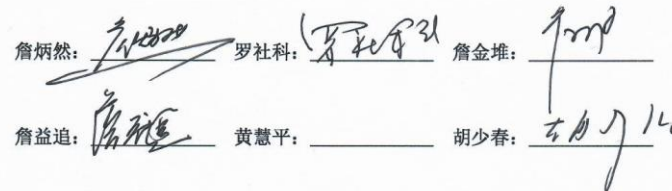 詹炳然: 罗社科: 罗社科 詹金堆:
詹益追: 詹益追 黄慧平: 胡少春: